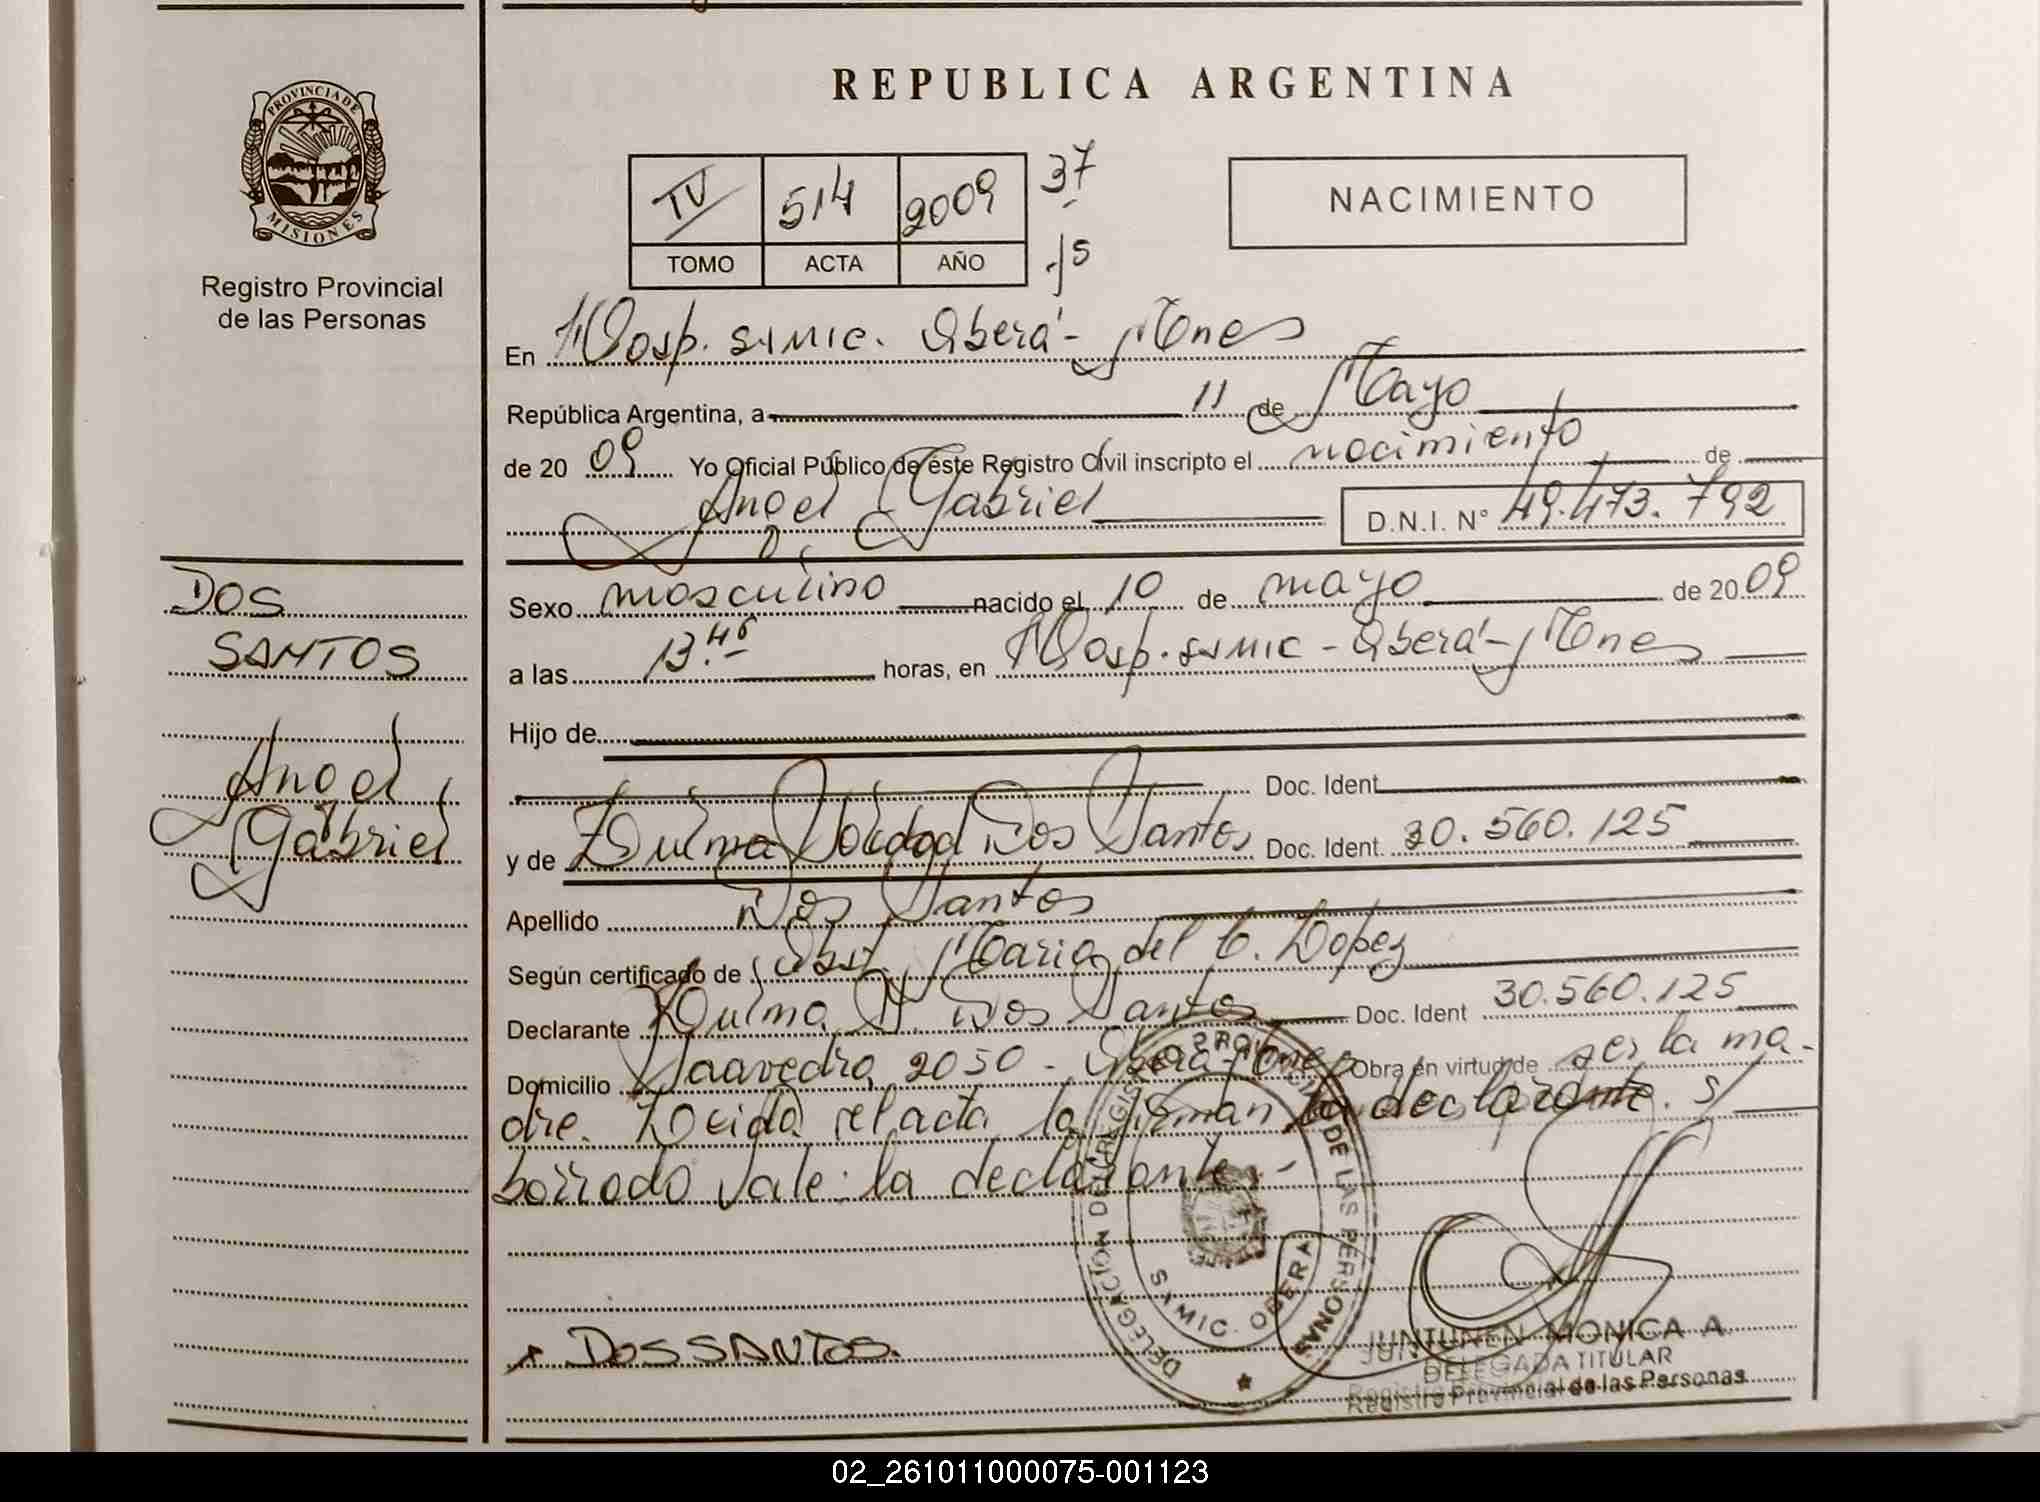 REPUBLICA ARGENTINA
PROVINCIA DE
MISIONES
Registro Provincial
de las Personas
TOMO IV
ACTA 514
AÑO 2009
37
15
NACIMIENTO
En Hosp. SAMIC. Oberá - Mnes
República Argentina, a 11 de Mayo
de 20 09 Yo Oficial Público de este Registro Civil inscripto el nacimiento de
Angel Gabriel D.N.I. N° 49.473.792
DOS
SANTOS
Angel
Gabriel
Sexo masculino nacido el 10 de mayo de 20 09
a las 13.45 horas, en Hosp. SAMIC - Oberá - Mnes
Hijo de
Doc. Ident
y de Zulma Soledad Dos Santos Doc. Ident. 30.560.125
Apellido Dos Santos
Según certificado de Obst. Maria del C. Lopez
Declarante Zulma S. Dos Santos Doc. Ident 30.560.125
Domicilio Saavedra 2050 - Oberá - Mnes Obra en virtud de ser la ma-
dre. Leida el acta la firman la declarante. S/
borrado vale: la declarante. -
DELEGACION DE REGISTRO PROVINCIAL DE LAS PERSONAS
SAMIC. OBERA
x DOS SANTOS.
JUNTUNEN MONICA A
DELEGADA TITULAR
Registro Provincial de las Personas
02_261011000075-001123